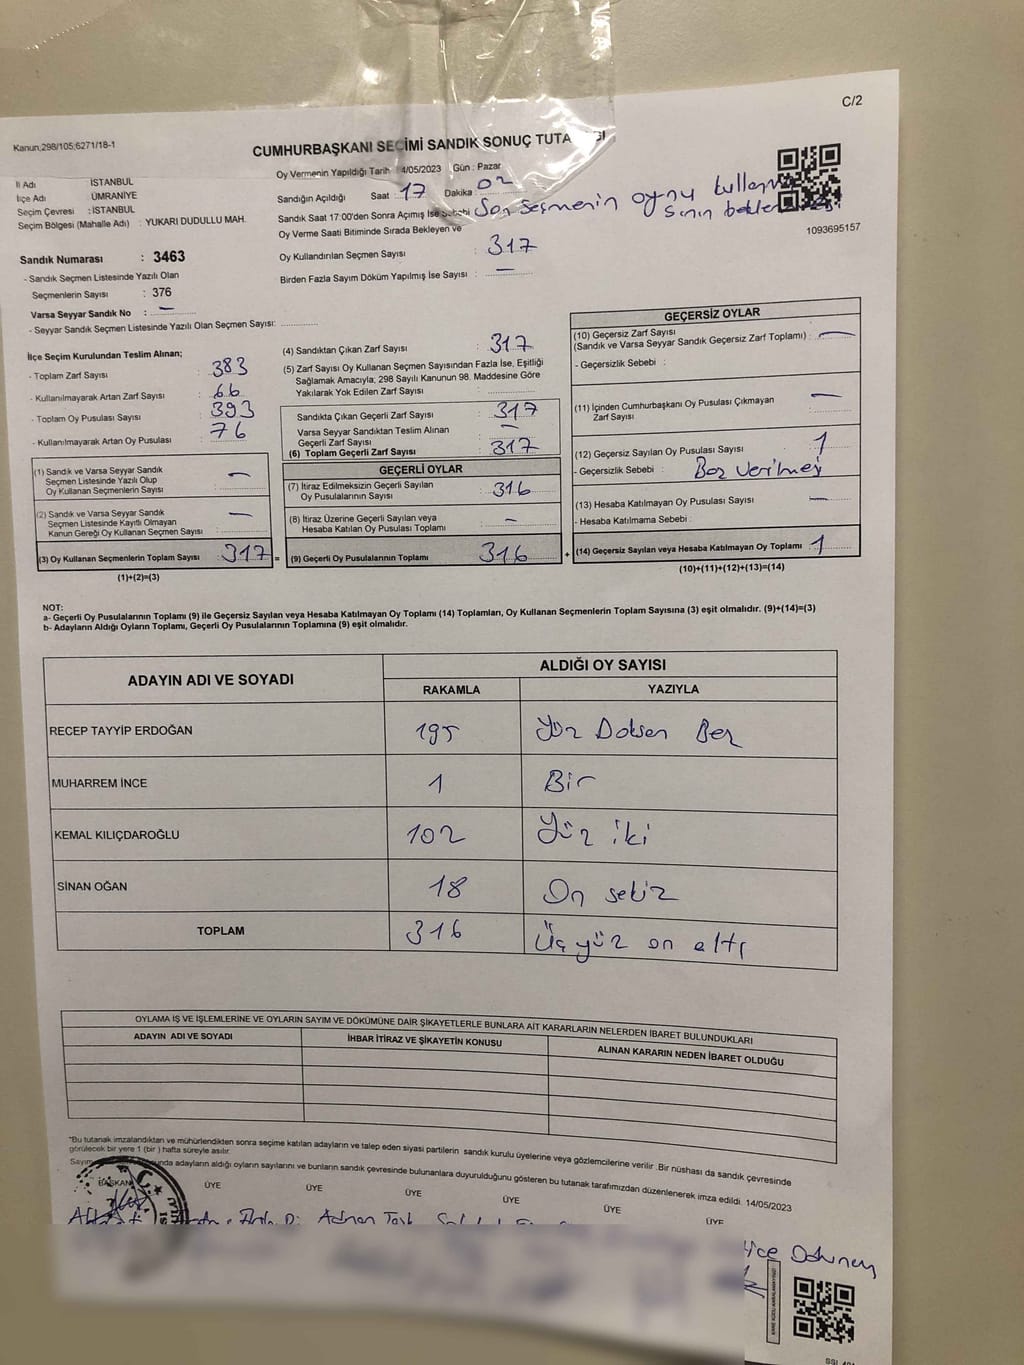 C/2
Kanun;298/105;6271/18-1
CUMHURBAŞKANI SEÇİMİ SANDIK SONUÇ TUTA
İl Adı İSTANBUL
İlçe Adı ÜMRANİYE
Seçim Çevresi : İSTANBUL
Seçim Bölgesi (Mahalle Adı) : YUKARI DUDULLU MAH.
Sandık Numarası : 3463
- Sandık Seçmen Listesinde Yazılı Olan
Seçmenlerin Sayısı : 376
Varsa Seyyar Sandık No : —
- Seyyar Sandık Seçmen Listesinde Yazılı Olan Seçmen Sayısı:
Oy Vermenin Yapıldığı Tarih 4/05/2023 Gün : Pazar
Sandığın Açıldığı Saat 17 Dakika 02
Sandık Saat 17:00'den Sonra Açımış İse Sebebi Son seçmenin oynu
Oy Verme Saati Bitiminde Sırada Bekleyen ve
Oy Kullandırılan Seçmen Sayısı : 317
Birden Fazla Sayım Döküm Yapılmış İse Sayısı : —
1093695157
İlçe Seçim Kurulundan Teslim Alınan;
- Toplam Zarf Sayısı : 383
- Kullanılmayarak Artan Zarf Sayısı : 66
- Toplam Oy Pusulası Sayısı : 393
- Kullanılmayarak Artan Oy Pusulası : 76
(1) Sandık ve Varsa Seyyar Sandık
Seçmen Listesinde Yazılı Olup
Oy Kullanan Seçmenlerin Sayısı : —
(2) Sandık ve Varsa Seyyar Sandık
Seçmen Listesinde Kayıtlı Olmayan
Kanun Gereği Oy Kullanan Seçmen Sayısı : —
(3) Oy Kullanan Seçmenlerin Toplam Sayısı : 317 =
(1)+(2)=(3)
(4) Sandıktan Çıkan Zarf Sayısı : 317
(5) Zarf Sayısı Oy Kullanan Seçmen Sayısından Fazla İse, Eşitliği
Sağlamak Amacıyla; 298 Sayılı Kanunun 98. Maddesine Göre
Yakılarak Yok Edilen Zarf Sayısı :
Sandıkta Çıkan Geçerli Zarf Sayısı : 317
Varsa Seyyar Sandıktan Teslim Alınan
Geçerli Zarf Sayısı : —
(6) Toplam Geçerli Zarf Sayısı : 317
GEÇERLİ OYLAR
(7) İtiraz Edilmeksizin Geçerli Sayılan
Oy Pusulalarının Sayısı : 316
(8) İtiraz Üzerine Geçerli Sayılan veya
Hesaba Katılan Oy Pusulası Toplamı : —
(9) Geçerli Oy Pusulalarının Toplamı : 316 +
GEÇERSİZ OYLAR
(10) Geçersiz Zarf Sayısı
(Sandık ve Varsa Seyyar Sandık Geçersiz Zarf Toplamı) : —
- Geçersizlik Sebebi :
(11) İçinden Cumhurbaşkanı Oy Pusulası Çıkmayan
Zarf Sayısı : —
(12) Geçersiz Sayılan Oy Pusulası Sayısı : 1
- Geçersizlik Sebebi :
(13) Hesaba Katılmayan Oy Pusulası Sayısı : —
- Hesaba Katılmama Sebebi :
(14) Geçersiz Sayılan veya Hesaba Katılmayan Oy Toplamı : 1
(10)+(11)+(12)+(13)=(14)
NOT:
a- Geçerli Oy Pusulalarının Toplamı (9) ile Geçersiz Sayılan veya Hesaba Katılmayan Oy Toplamı (14) Toplamları, Oy Kullanan Seçmenlerin Toplam Sayısına (3) eşit olmalıdır. (9)+(14)=(3)
b- Adayların Aldığı Oyların Toplamı, Geçerli Oy Pusulalarının Toplamına (9) eşit olmalıdır.
ADAYIN ADI VE SOYADI
ALDIĞI OY SAYISI
RAKAMLA YAZIYLA
RECEP TAYYİP ERDOĞAN 195 Yüz Doksen Beş
MUHARREM İNCE 1 Bir
KEMAL KILIÇDAROĞLU 102 Yüz iki
SİNAN OĞAN 18 On sekiz
TOPLAM 316 Üç yüz on altı
OYLAMA İŞ VE İŞLEMLERİNE VE OYLARIN SAYIM VE DÖKÜMÜNE DAİR ŞİKAYETLERLE BUNLARA AİT KARARLARIN NELERDEN İBARET BULUNDUKLARI
ADAYIN ADI VE SOYADI İHBAR İTİRAZ VE ŞİKAYETİN KONUSU ALINAN KARARIN NEDEN İBARET OLDUĞU
"Bu tutanak imzalandıktan ve mühürlendikten sonra seçime katılan adayların ve talep eden siyasi partilerin sandık kurulu üyelerine veya gözlemcilerine verilir .Bir nüshası da sandık çevresinde
görülecek bir yere 1 (bir ) hafta süreyle asılır.
adayların aldığı oyların sayılarını ve bunların sandık çevresinde bulunanlara duyurulduğunu gösteren bu tutanak tarafımızdan düzenlenerek imza edildi. 14/05/2023
BAŞKAN ÜYE ÜYE ÜYE ÜYE ÜYE ÜYE
Adnan